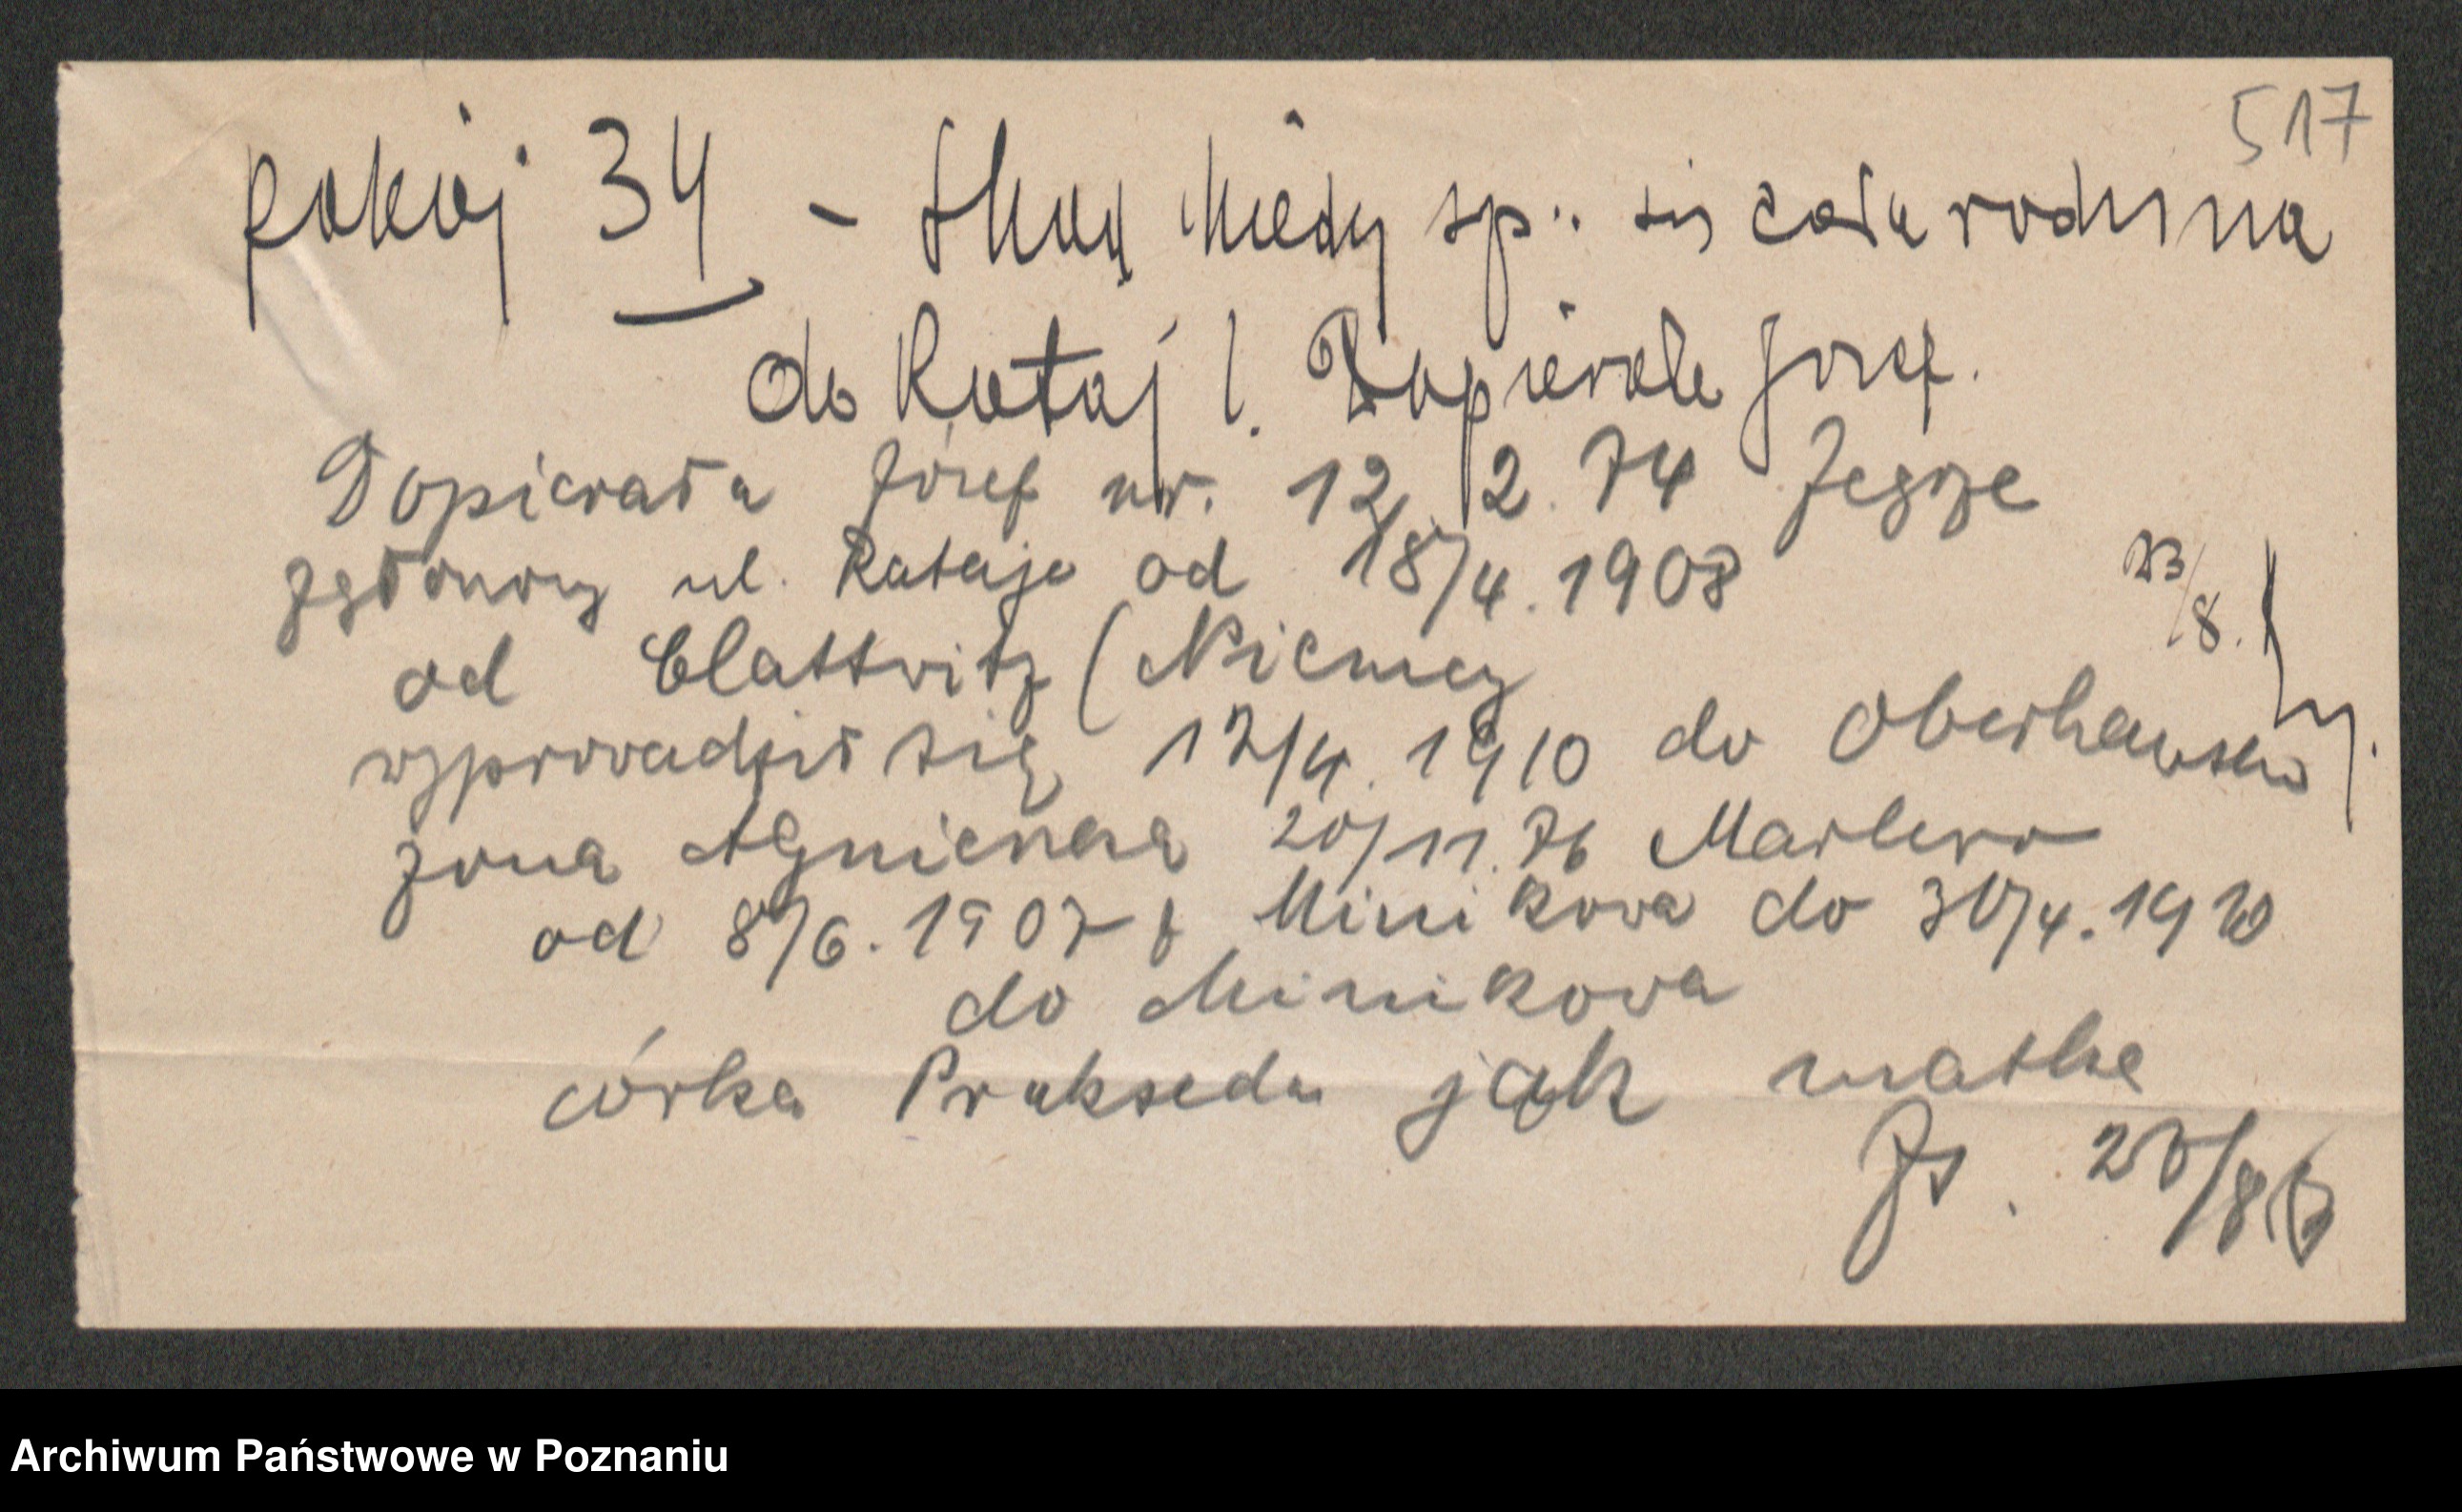 517
pokój 34 - skąd i kiedy sp. się cała rodzina
do Rataj l. Dopierała Józef.
Dopierała Józef ur. 12/2.74 Zegrze
zgłoszony ul. Rataje od 18/4.1908
23/8.
od Clattwitz (Niemcy
wyprowadził się 12/4.1910 do Oberhausen
żona Agnieszka 20/11.76 Marlewo
od 8/6.1907 z Minikowa do 30/4.1910
do Minikowa
córka Prakseda jak matka
Js. 23/8
Archiwum Państwowe w Poznaniu